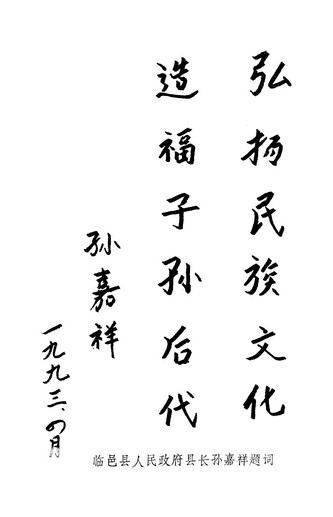 弘扬民族文化
造福子孙后代
孙嘉祥
一九九三、四月
临邑县人民政府县长孙嘉祥题词